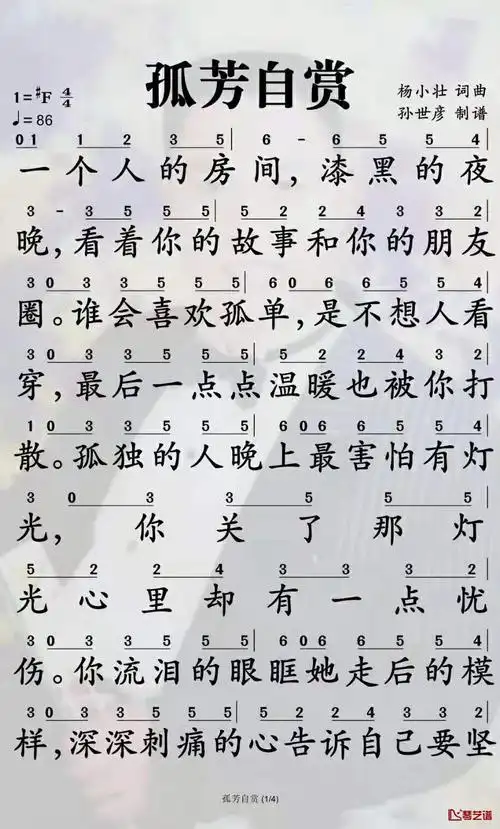 孤芳自赏
1=#F 4/4
♩=86
杨小壮 词曲
孙世彦 制谱
0 1 1 2 3 5| 6 - 6 5 5 4|
一个人的房间，漆黑的夜
3 - 3 5 5 5| 5 2 2 4 3 3 2|
晚，看着你的故事和你的朋友
3 0 3 3 5 5 5| 6 0 6 6 5 5 4|
圈。谁会喜欢孤单，是不想人看
3 0 3 3 5 5 5| 5 2 2 4 3 2|
穿，最后一点点温暖也被你打
1 0 3 3 5 5 5| 6 0 6 6 5 5 4|
散。孤独的人晚上最害怕有灯
3 0 3 3 5 5 5|
光，你关了那灯
5 2 2 4 3 3 2|
光心里却有一点忧
3 0 3 3 5 5 5| 6 0 6 6 5 5 4|
伤。你流泪的眼眶她走后的模
3 0 3 3 5 5 5| 5 2 2 4 3 3 2|
样，深深刺痛的心告诉自己要坚
孤芳自赏 (1/4)
琴艺谱